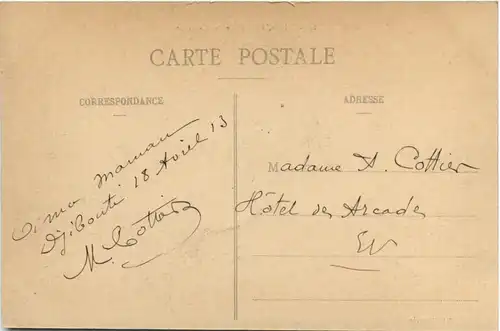 CARTE POSTALE
CORRESPONDANCE
ADRESSE
maman
Djibouti 18 Avril 13
M. Cottier
Madame A. Cottier
Hôtel des Arcades
EV